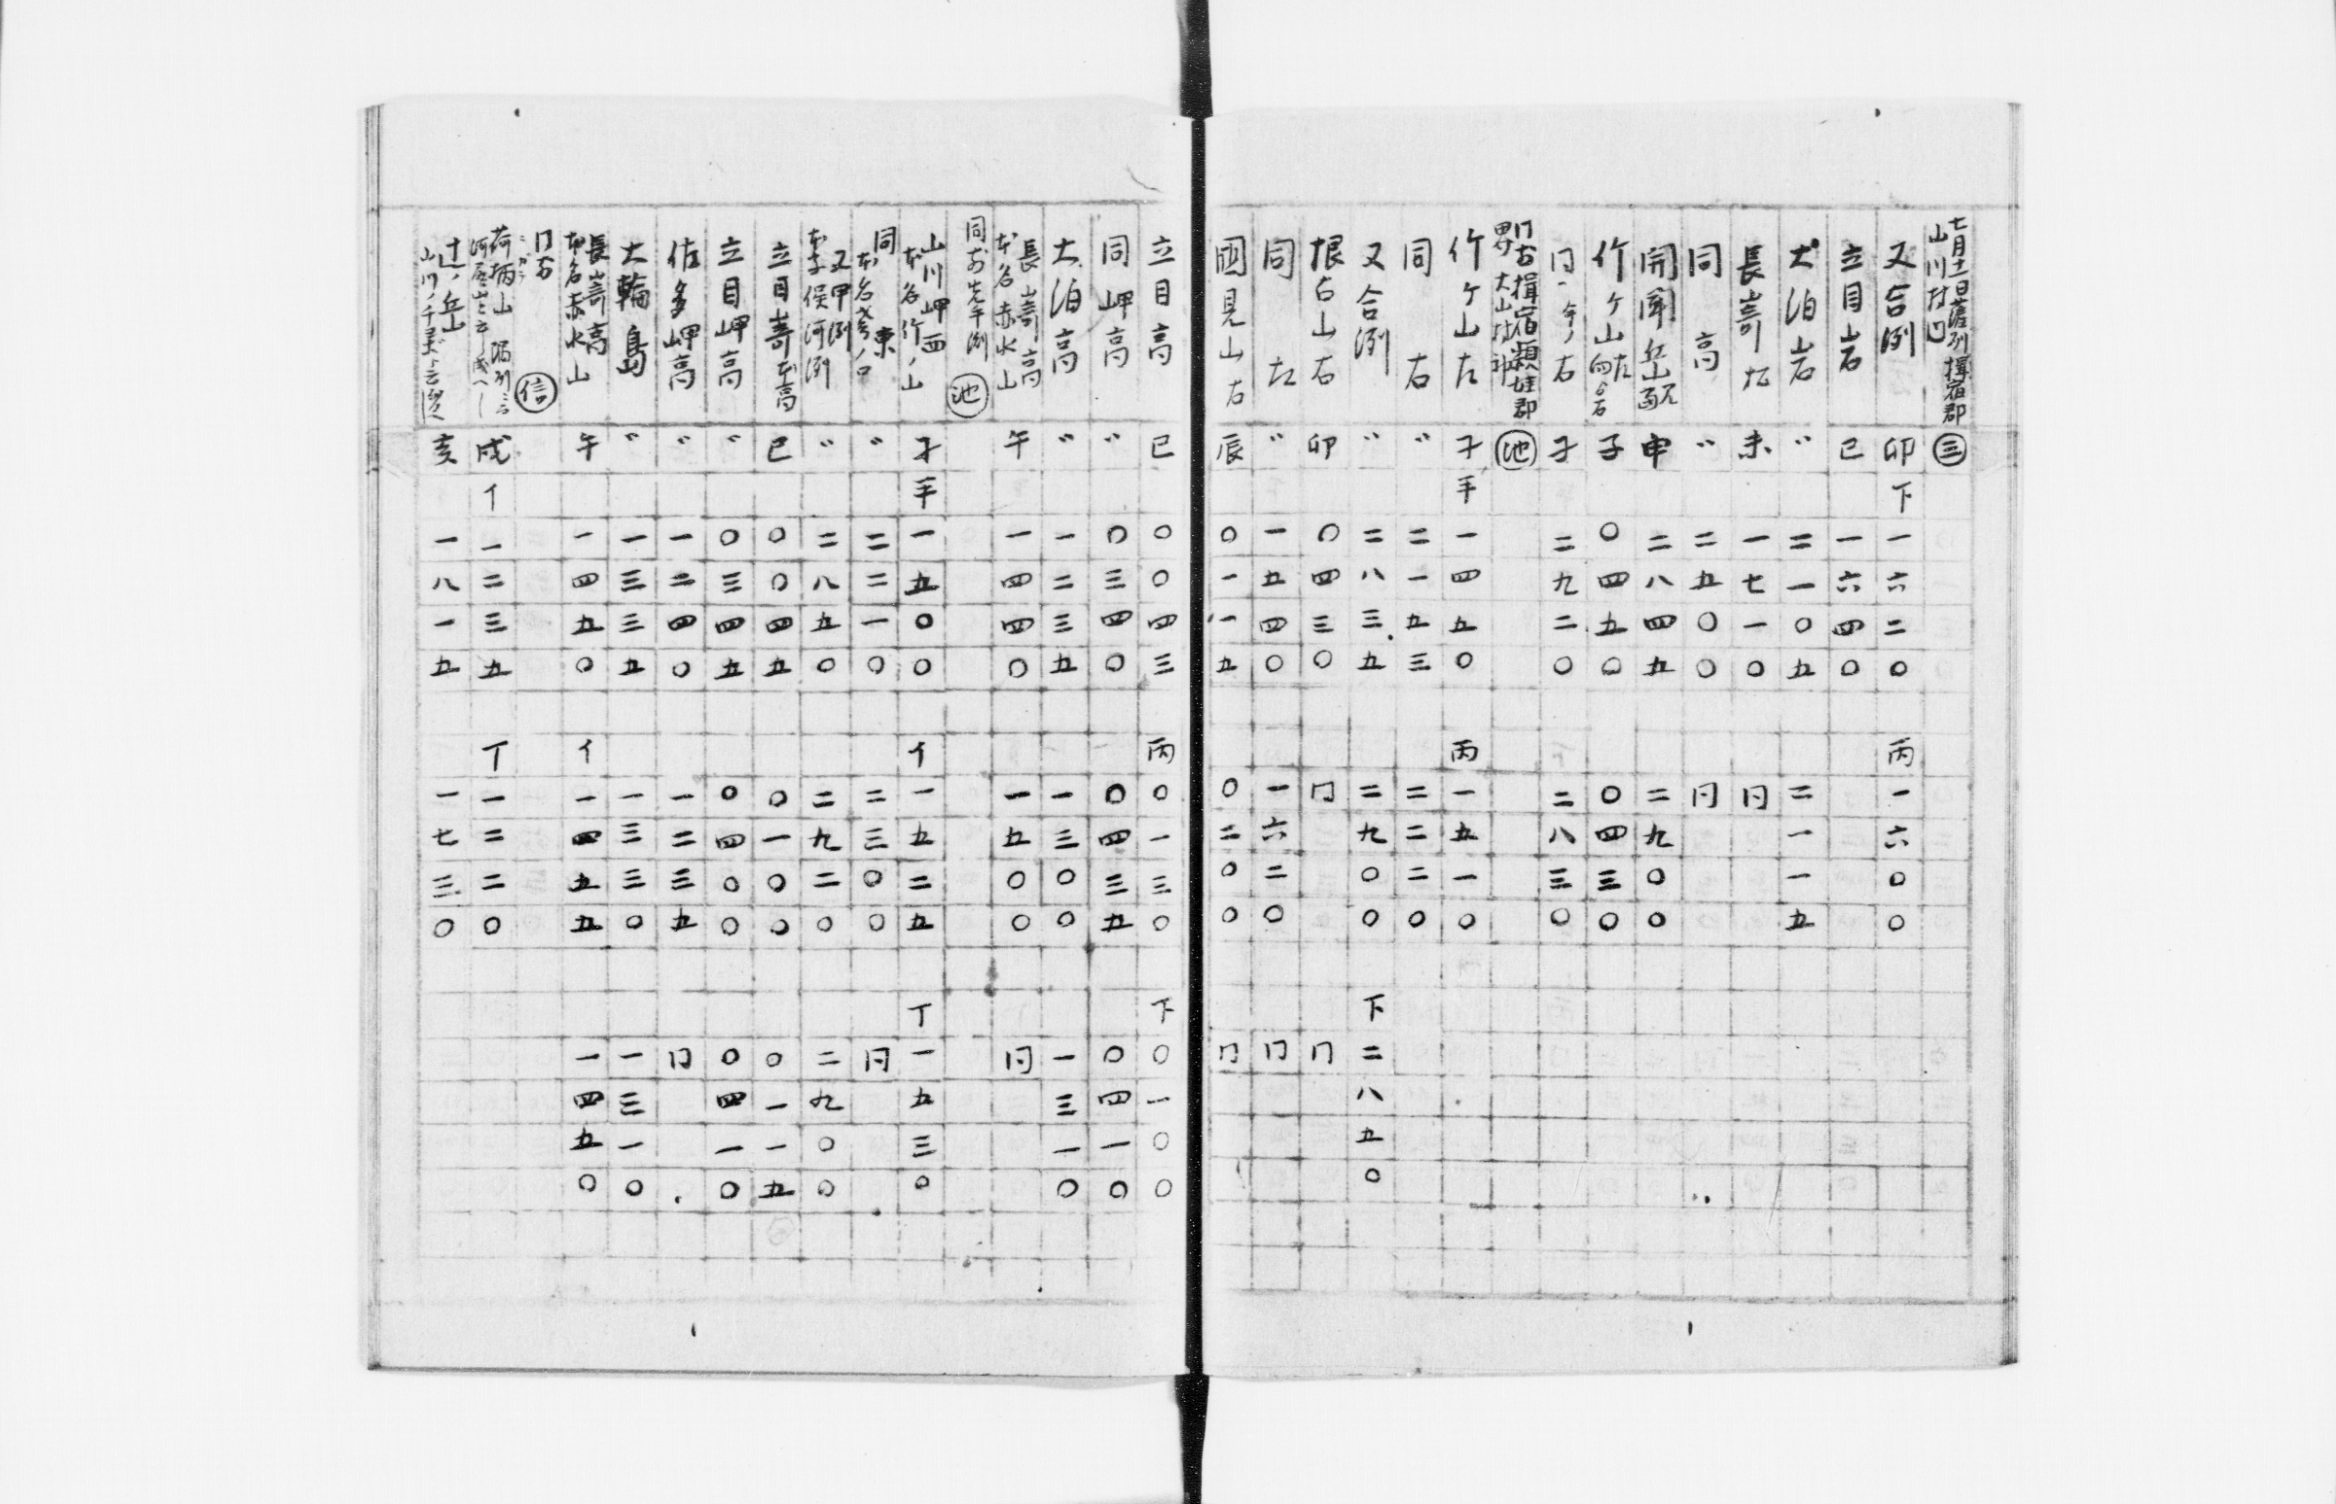 七月十一日薩州揖宿郡
山川村凹 ㊂
又合測 卯 下 一六二〇 丙 一六〇〇
立目岩 巳 一六四〇
大泊岩 〃 二一〇五 二一一五
長嵜左 未 一七一〇 同
同高 〃 二五〇〇 同
開聞岳 申 二八四五 二九〇〇
竹ケ山左 子 〇四五〇 〇四三〇
同 右 子 二九二〇 二八三〇
同右 揖宿頴娃郡
界 大山村 池
竹ケ山左 子 手 一四五〇 丙 一五一〇
同 右 〃 二一五三 二二二〇
又合測 〃 二八三五 二九〇〇 下 二八五〇
根占山右 卯 〇四三〇 同 同
同 左 〃 一五四〇 一六二〇 同
國見山右 辰 〇一一五 〇二〇〇 同
立目高 巳 〇〇四三 丙 〇一三〇 下 〇一〇〇
同岬高 〃 〇三四〇 〇四三五 〇四一〇
大泊高 〃 一二三五 一三〇〇 一三一〇
長嵜高
本名赤水山 午 一四四〇 一五〇〇 同
同所先手測 池
山川岬西
本名竹ノ山 子 手 一五〇〇 イ 一五二五 丁 一五三〇
同 東 〃 二二一〇 二三〇〇 同
又甲測
俣河測 〃 二八五〇 二九二〇 二九〇〇
立目嵜高 巳 〇〇四五 〇一〇〇 〇一一五
立目岬高 〃 〇三四五 〇四〇〇 〇四一〇
佐多岬高 〃 一二四〇 一二三五 同
大輪島 〃 一三三五 一三三〇 一三一〇
長嵜高
本名赤水山 午 一四五〇 一四五五 一四五〇
同所 信
荷柄山 戌 イ 一二三五 丁 一二二〇
辻ノ岳 亥 一八一五 一七三〇